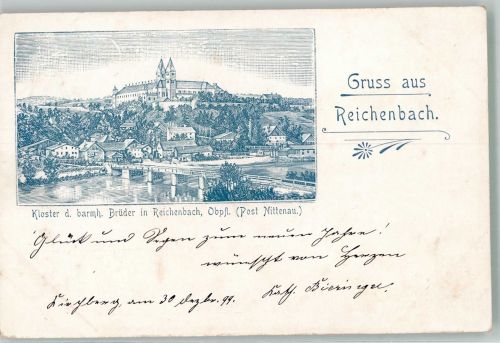 Gruss aus
Reichenbach.
Kloster d. barmh. Brüder in Reichenbach, Obpfl. (Post Nittenau.)
Glück und Segen zum neuen Jahre!
wünscht von Herzen
Kirchberg am 30 Dezbr. 99. Kath.